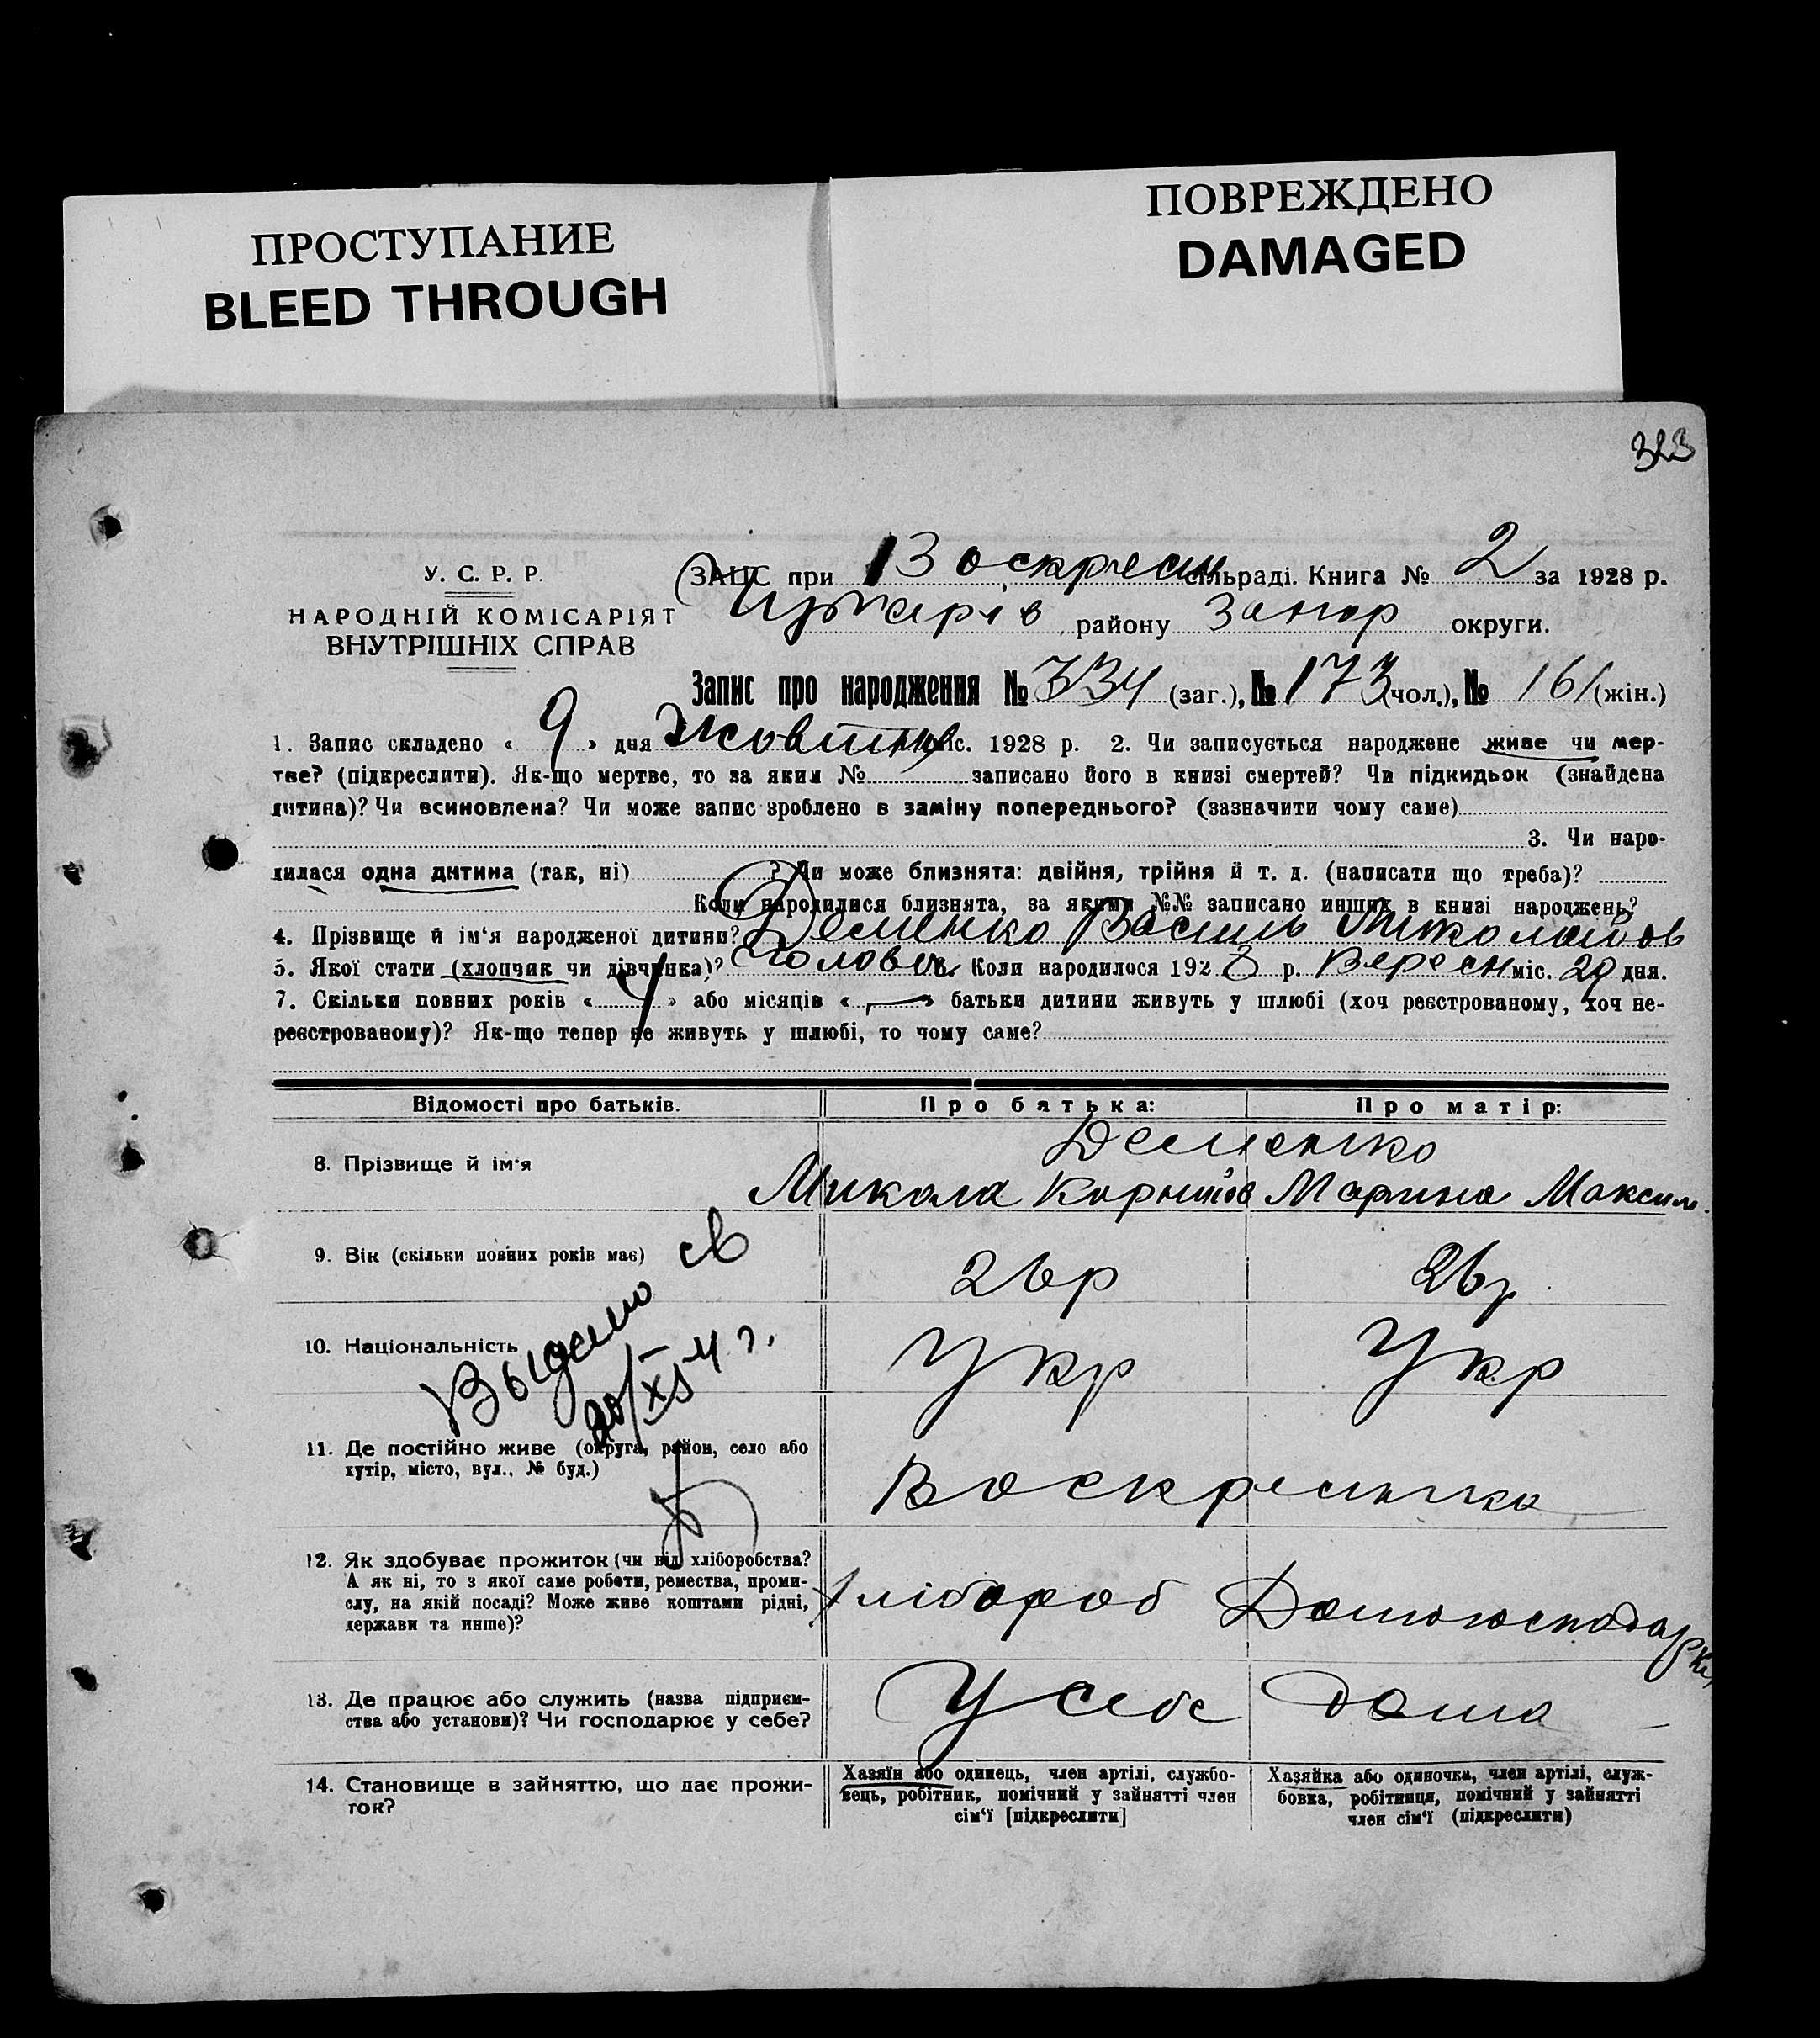 ПРОСТУПАНИЕ
BLEED THROUGH
ПОВРЕЖДЕНО
DAMAGED
323
У. С. Р. Р.
НАРОДНІЙ КОМІСАРІЯТ
ВНУТРІШНІХ СПРАВ
ЗАЦС при Воскресен сільраді. Книга № 2 за 1928 р.
району Запор округи.
Запис про народження № 334 (заг.), № 173 (чол.), № 161 (жін.)
1. Запис складено « 9 » дня Жовтня міс. 1928 р. 2. Чи записується народжене живе чи мер-
тве? (підкреслити). Як-що мертве, то за яким № записано його в книзі смертей? Чи підкидьок (знайдена
дитина)? Чи всиновлена? Чи може запис зроблено в заміну попереднього? (зазначити чому саме)
3. Чи наро-
дилася одна дитина (так, ні) ? Чи може близнята: двійня, трійня й т. д. (написати що треба)?
Коли народилися близнята, за якими №№ записано инших в книзі народжень?
4. Прізвище й ім'я народженої дитини? Деменко Василь Миколайов
5. Якої стати (хлопчик чи дівчинка)? Чоловіч. Коли народилося 1928 р. Вересн міс. 29 дня.
7. Скільки повних років « 4 » або місяців « — » батьки дитини живуть у шлюбі (хоч реєстрованому, хоч не-
реєстрованому)? Як-що тепер не живуть у шлюбі, то чому саме?
Відомості про батьків. Про батька: Про матір:
Деменко
8. Прізвище й ім'я Микола Марина Максим.
9. Вік (скільки повних років має) 26р 26р
10. Національність Укр Укр
Выдано св
20/XI 4 г.
11. Де постійно живе (округа, район, село або
хутір, місто, вул., № буд.) Воскресенка
12. Як здобуває прожиток (чи від хліборобства?
А як ні, то з якої саме роботи, ремества, проми-
слу, на якій посаді? Може живе коштами рідні,
держави та инше)? Хлібороб Домогосподарка
13. Де працює або служить (назва підприєм-
ства або установи)? Чи господарює у себе? У себе дома
14. Становище в зайняттю, що дає прожи-
ток?
Хазяїн або одинець, член артілі, службо-
вець, робітник, помічний у зайнятті член
сім'ї [підкреслити]
Хазяйка або одиночка, член артілі, служ-
бовка, робітниця, помічний у зайнятті
член сім'ї (підкреслити)